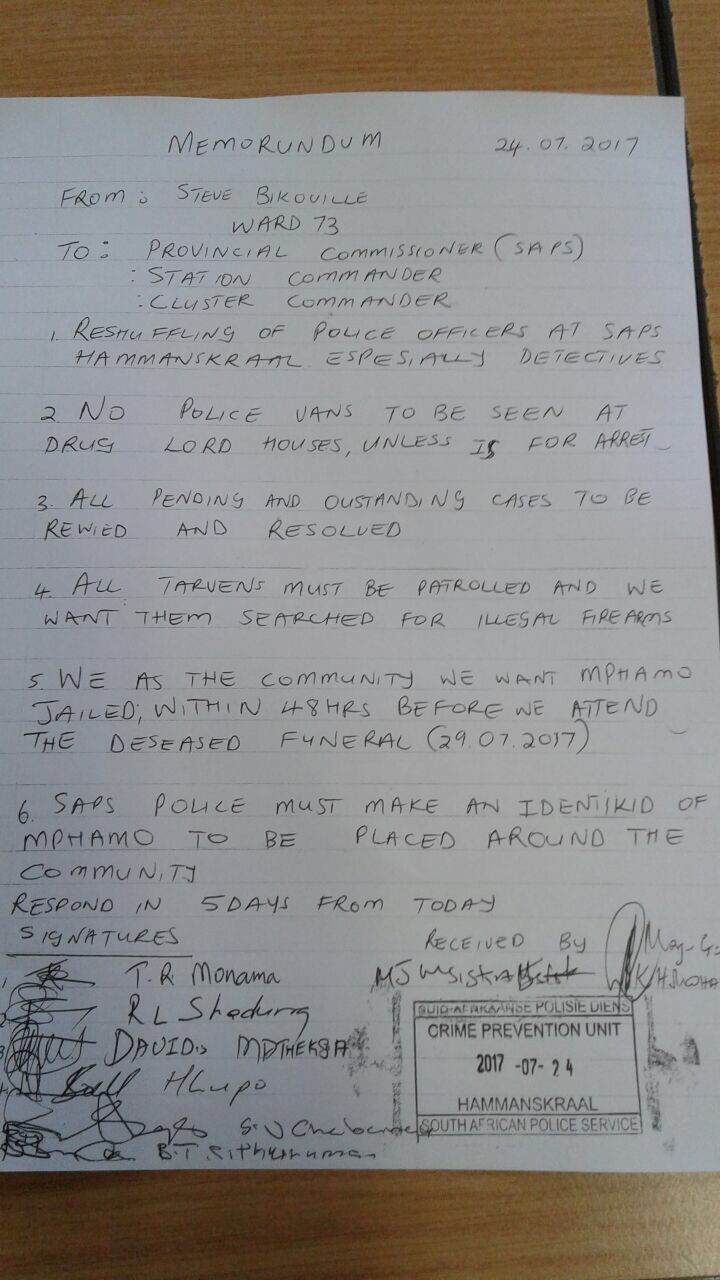 MEMORUNDUM 24.07.2017
FROM: STEVE BIKOVILLE
WARD 73
TO: PROVINCIAL COMMISSIONER (SAPS)
: STATION COMMANDER
: CLUSTER COMMANDER
1. RESHUFFLING OF POLICE OFFICERS AT SAPS
HAMMANSKRAAL ESPESIALLY DETECTIVES
2. NO POLICE VANS TO BE SEEN AT
DRUG LORD HOUSES, UNLESS IS FOR ARREST
3. ALL PENDING AND OUSTANDING CASES TO BE
REWIED AND RESOLVED
4. ALL TARVENS MUST BE PATROLLED AND WE
WANT THEM SEARCHED FOR ILLEGAL FIREARMS
5. WE AS THE COMMUNITY WE WANT MPHAMO
JAILED, WITHIN 48HRS BEFORE WE ATTEND
THE DESEASED FUNERAL (29.07.2017)
6. SAPS POLICE MUST MAKE AN IDENTIKID OF
MPHAMO TO BE PLACED AROUND THE
COMMUNITY
RESPOND IN 5 DAYS FROM TODAY
SIGNATURES
RECEIVED BY
T.R Monama
R L
DAVID
HLupo
SUID-AFRIKAANSE POLISIE DIENS
CRIME PREVENTION UNIT
2017 -07- 24
HAMMANSKRAAL
SOUTH AFRICAN POLICE SERVICE
B.T.